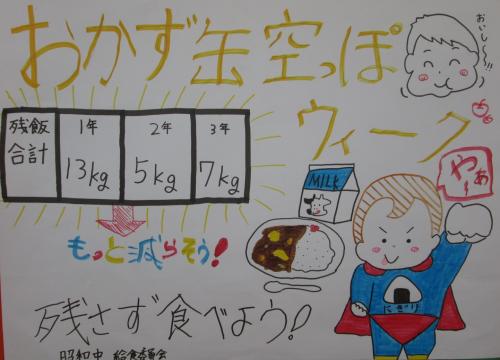 おかず缶空っぽ
ウィーク
おいし〜〜!!
残飯合計
1年
13kg
2年
5kg
3年
7kg
もっと減らそう!
MILK
やぁー
にぎり
残さず食べよう!
昭和中 給食委員会